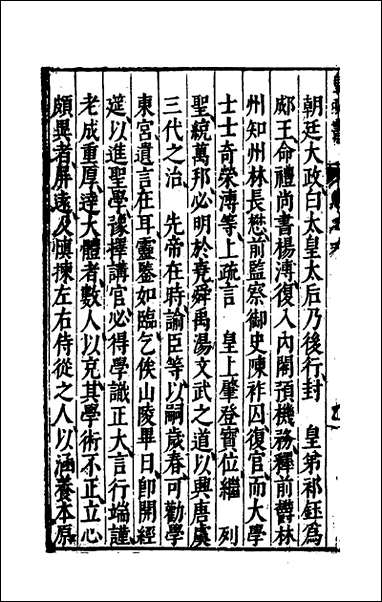 朝廷大政白太皇太后乃後行封　皇弟祁鈺為
郕王命禮尚書楊溥復入內閣預機務釋前欝林
州知州林長懋前監察御史陳祚囚復官而大學
士士奇榮溥等上疏言　皇上肇登寶位繼　列
聖統萬邦必明於堯舜禹湯文武之道以興唐虞
三代之治　先帝在時諭臣等以嗣歲春可勸學
東宮遺言在耳靈鑒如臨乞俟山陵畢日即開經
筵以進聖學豫擇講官必得學識正大言行端謹
老成重厚達大體者數人以充其學術不正立心
頗異者屏遠及慎揀左右侍從之人以涵養本原